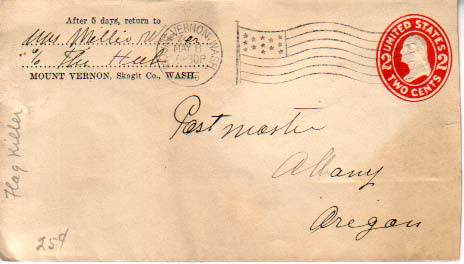 After 5 days, return to
Mrs Mollie
c/o The Hub
MOUNT VERNON, Skagit Co., WASH.
VERNON, WASH.
UNITED STATES
2 2
TWO CENTS
Postmaster
Albany
Oregon
Flag Killer
25¢